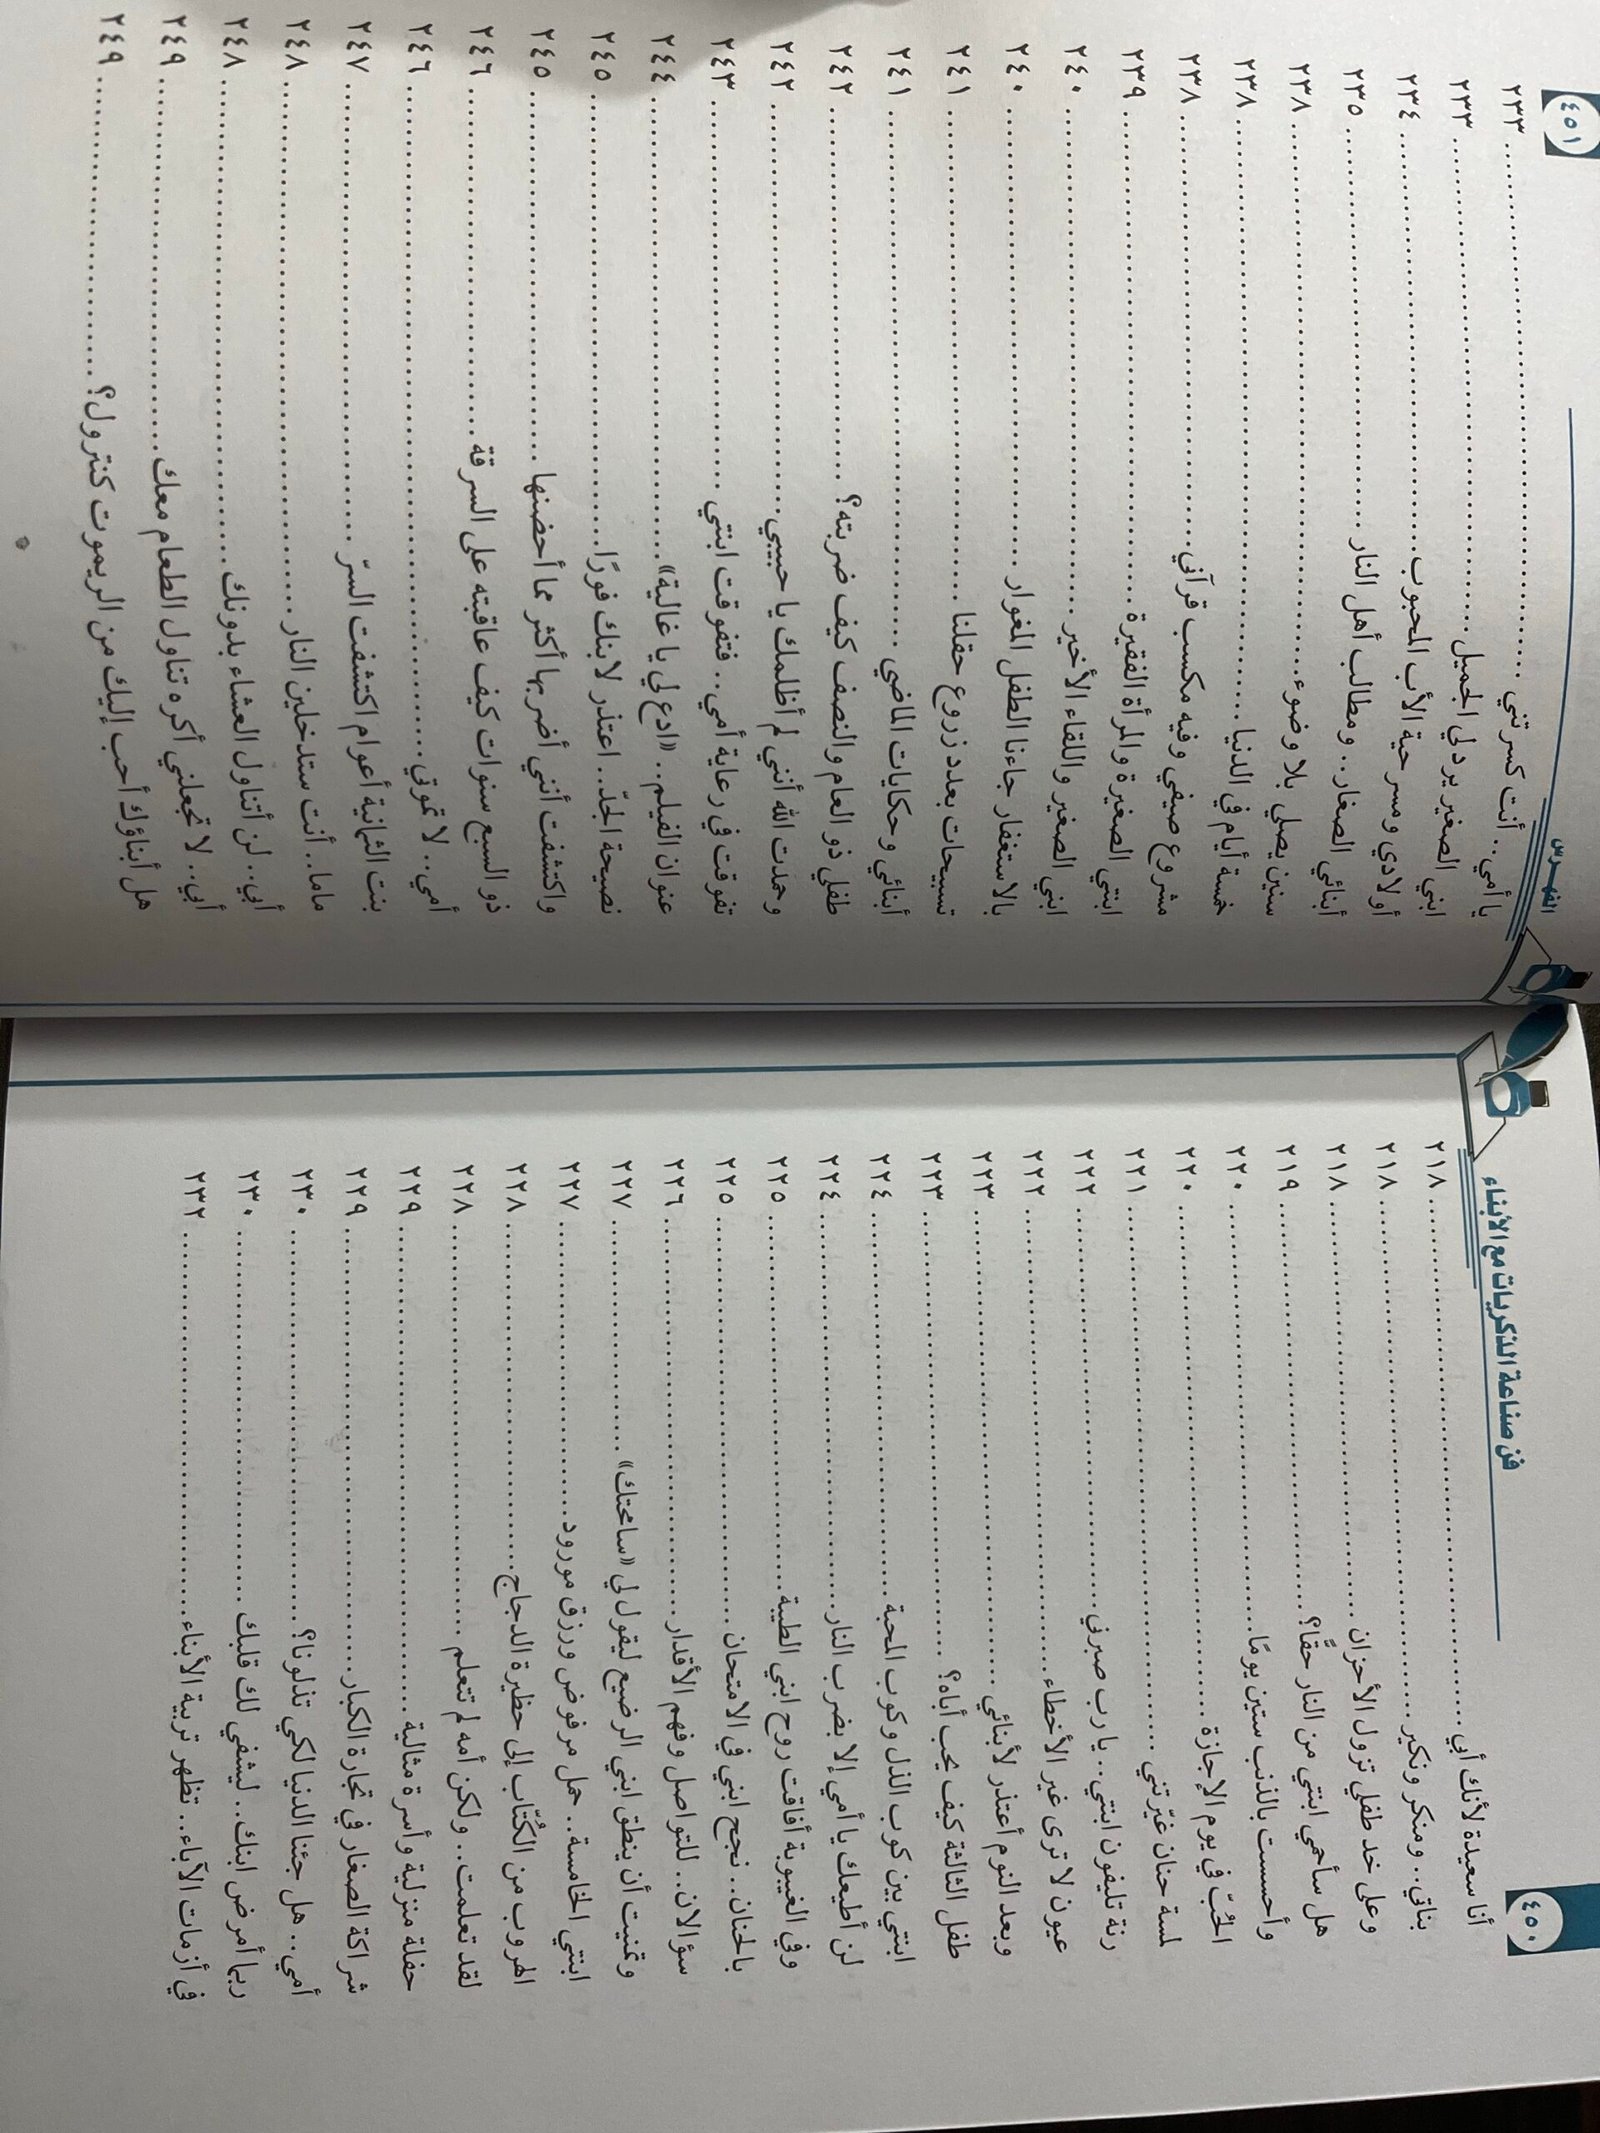 ٤٥٠
فن صناعة الذكريات مع الأبناء
أنا سعيدة لأنك أبي ........ ٢١٨
بناتي.. ومنكر ونكير ........ ٢١٨
وعلى خد طفلي تزول الأحزان ........ ٢١٨
هل سأحمي ابنتي من النار حقًّا؟ ........ ٢١٩
وأحسست بالذنب ستين يومًا ........ ٢٢٠
الحُبّ في يوم الإجازة ........ ٢٢٠
لمسة حنان غيّرتني ........ ٢٢١
رنة تليفون ابنتي.. يا رب صبرني ........ ٢٢٢
عيون لا ترى غير الأخطاء ........ ٢٢٢
وبعد النوم أعتذر لأبنائي ........ ٢٢٣
طفل الثالثة كيف يحب أباه؟ ........ ٢٢٣
ابنتي بين كوب الذل وكوب المحبة ........ ٢٢٤
لن أطيعك يا أمي إلا بضرب النار ........ ٢٢٤
وفي الغيبوبة أفاقت روح ابني الطيبة ........ ٢٢٥
بالحنان.. نجح ابني في الامتحان ........ ٢٢٥
سؤالان.. للتواصل وفهم الأقدار ........ ٢٢٦
وتمنيت أن ينطق ابني الرضيع ليقول لي «سامحتك» ........ ٢٢٧
ابنتي الخامسة.. حمل مرفوض ورزق مورود ........ ٢٢٧
الهروب من الكُتّاب إلى حظيرة الدجاج ........ ٢٢٨
لقد تعلمت.. ولكن أمه لم تتعلم ........ ٢٢٨
حفلة منزلية وأسرة مثالية ........ ٢٢٩
شراكة الصغار في تجارة الكبار ........ ٢٢٩
أمي.. هل جئنا الدنيا لكي تذلونا؟ ........ ٢٣٠
ربما أمرض ابنك.. ليشفي لك قلبك ........ ٢٣٠
في أزمات الآباء.. تظهر تربية الأبناء ........ ٢٣٢
الفهرس
٤٥١
يا أمي.. أنت كسرتني ........ ٢٣٣
ابني الصغير يرد لي الجميل ........ ٢٣٣
أولادي ومسرحية الأب المحبوب ........ ٢٣٤
أبنائي الصغار.. ومطالب أهل النار ........ ٢٣٥
سنين يصلي بلا وضوء ........ ٢٣٨
خمسة أيام في الدنيا ........ ٢٣٨
مشروع صيفي وفيه مكسب قرآني ........ ٢٣٨
ابنتي الصغيرة والمرأة الفقيرة ........ ٢٣٩
ابني الصغير واللقاء الأخير ........ ٢٤٠
بالاستغفار جاءنا الطفل المغوار ........ ٢٤٠
تسبيحات بعدد زروع حقلنا ........ ٢٤١
أبنائي وحكايات الماضي ........ ٢٤١
طفلي ذو العام والنصف كيف ضربته؟ ........ ٢٤٢
وحمدت الله أنني لم أظلمك يا حبيبي ........ ٢٤٢
تفوقت في رعاية أمي.. فتفوقت ابنتي ........ ٢٤٣
عنوان الفيلم.. «ادع لي يا غالية» ........ ٢٤٤
نصيحة الجدّ.. اعتذر لابنك فورًا ........ ٢٤٥
واكتشفت أنني أضربها أكثر مما أحضنها ........ ٢٤٥
ذو السبع سنوات كيف عاقبته على السرقة ........ ٢٤٦
أمي.. لا تموتي ........ ٢٤٦
بنت الثمانية أعوام اكتشفت السرّ ........ ٢٤٧
ماما.. أنت ستدخلين النار ........ ٢٤٨
أبي.. لن أتناول العشاء بدونك ........ ٢٤٨
أبي.. لا تجعلني أكره تناول الطعام معك ........ ٢٤٩
هل أبناؤك أحب إليك من الريموت كنترول؟ ........ ٢٤٩